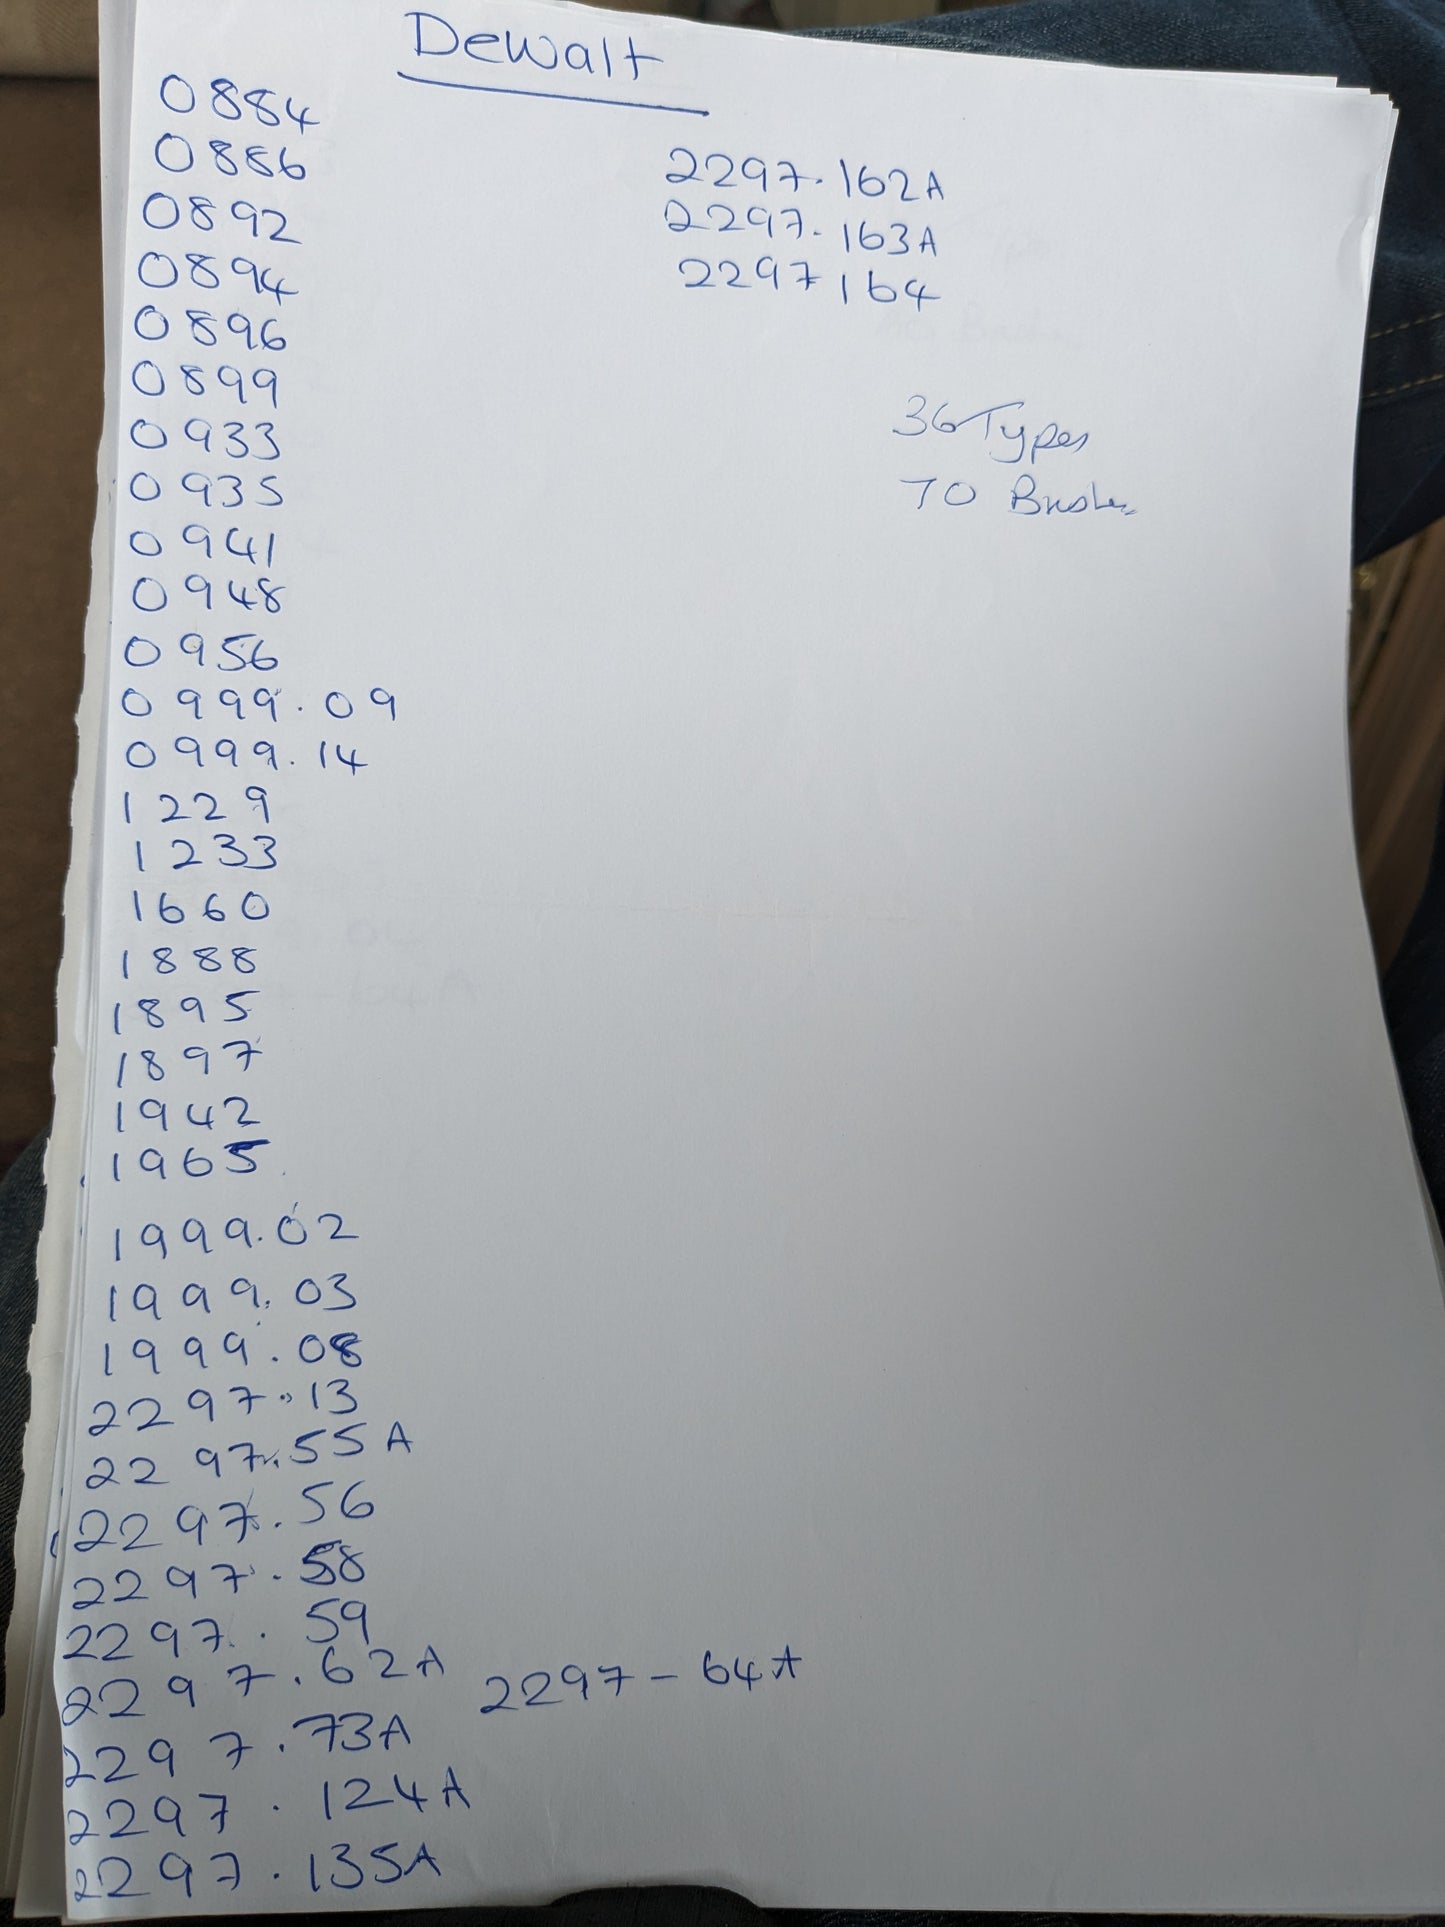 Dewalt
0884
0886
0892
0894
0896
0899
0933
0935
0941
0948
0956
0999.09
0999.14
1229
1233
1660
1888
1895
1897
1942
1965
1999.02
1999.03
1999.08
2297.13
2297.55A
2297.56
2297.58
2297.59
2297.62A 2297-64A
2297.73A
2297.124A
2297.135A
2297.162A
2297.163A
2297 164
36 Types
70 Brushes